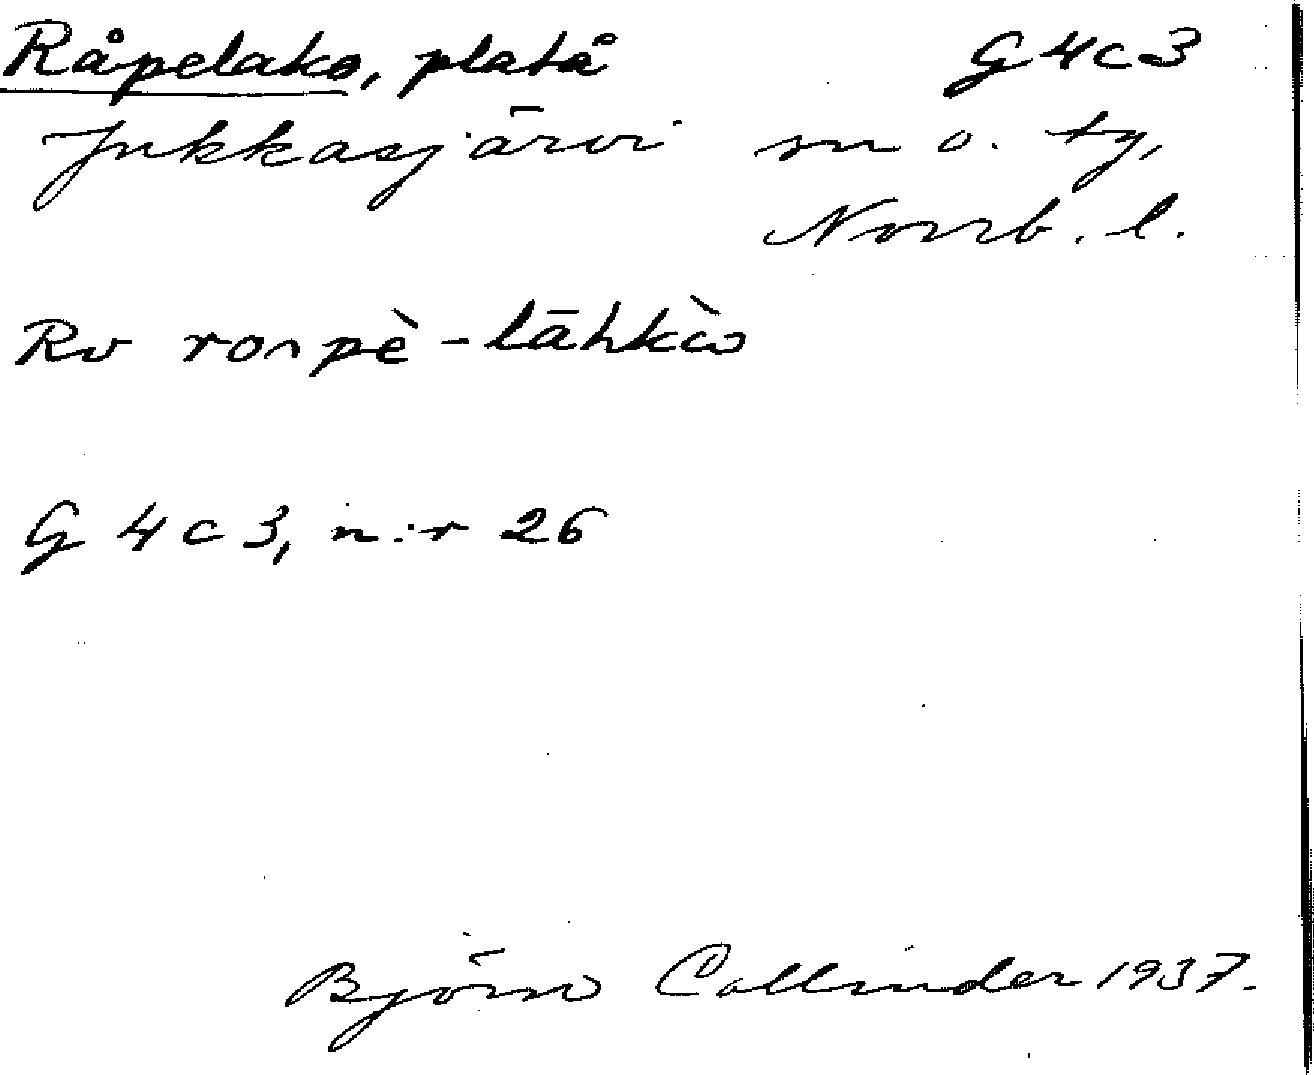 Råpelako, platå G4c3
Jukkasjärvi sn o. tg,
Norrb. l.
Rv roᴖpè-lāhkò
G 4 c 3, n:r 26
Björn Collinder 1937.